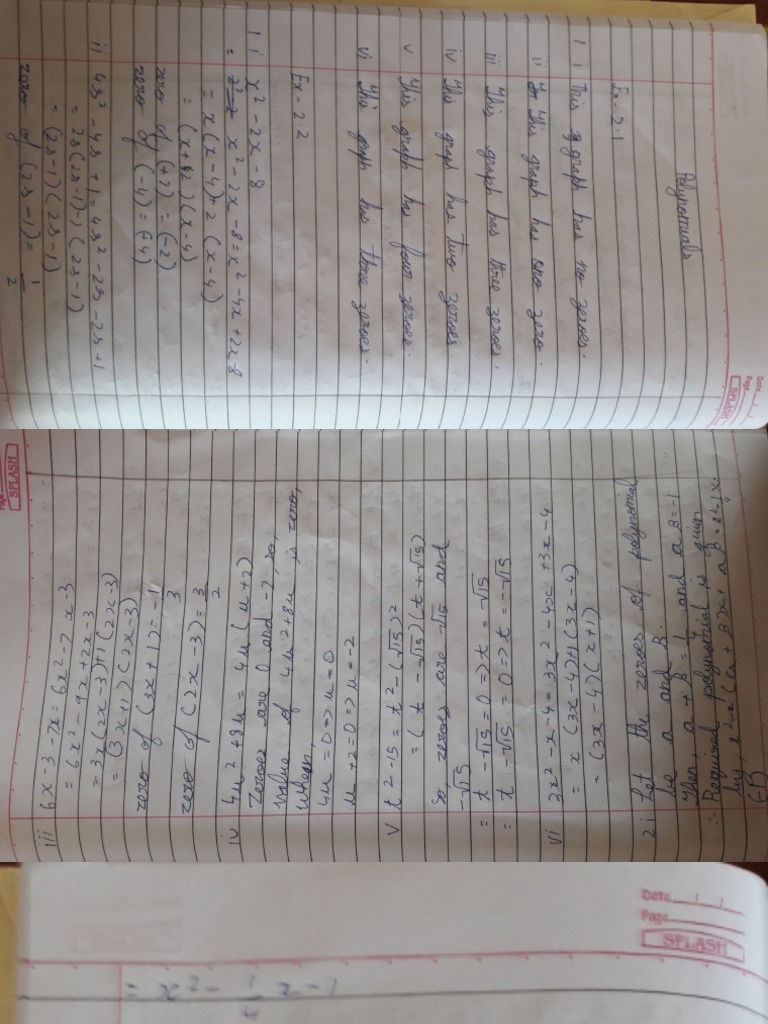 Date
Page
SPLASH
Polynomials
Ex-2.1
1 i This graph has no zeroes.
ii This graph has one zero.
iii This graph has three zeroes.
iv This graph has two zeroes
v This graph has four zeroes.
vi This graph has three zeroes.
Ex-2.2
1 i x² - 2x - 8
= x² - 2x - 8 = x² - 4x + 2x 8
= x(x-4)+2(x-4)
= (x+2)(x-4)
zero of (+2) = (-2)
zero of (-4) = (4)
ii 4s² - 4s + 1 = 4s² - 2s - 2s + 1
= 2s(2s-1)-1(2s-1)
= (2s-1)(2s-1)
zero of (2s-1) = 1/2
SPLASH
iii 6x-3-7x = 6x²-7x-3
= 6x²-9x+2x-3
= 3x(2x-3)+1(2x-3)
= (3x+1)(2x-3)
zero of (3x+1) = -1/3
zero of (2x-3) = 3/2
iv 4u²+8u = 4u(u+2)
Zeroes are 0 and -2, so,
value of 4u²+8u is zero,
when,
4u=0 => u=0
u+2=0 => u=-2
v t²-15 = t²-(√15)²
= (t-√15)(t+√15)
So, zeroes are √15 and
-√15
= t-√15=0 => t=√15
= t-√15=0 => t=-√15
vi 3x²-x-4 = 3x²-4x+3x-4
= x(3x-4)+1(3x-4)
= (3x-4)(x+1)
2 i Let the zeroes of polynomial
be a and B.
Then, a+B=1/4 and aB=-1
∴ Required polynomial is given
Date
Page
SPLASH
= x² - 1/4 x - 1